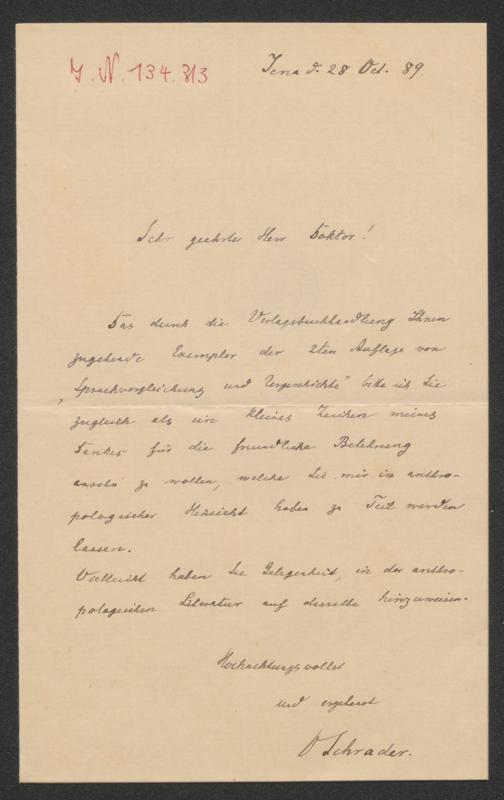 J. N. 134.813
Jena d. 28 Oct. 89.
Sehr geehrter Herr Doktor!
Das durch die Verlagsbuchhandlung Ihnen
zugehende Exemplar der 2ten Auflage von
„Sprachvergleichung und Urgeschichte" bitte ich Sie
zugleich als ein kleines Zeichen meines
Dankes für die freundliche Belehrung
ansehn zu wollen, welche Sie mir in anthro-
pologischer Hinsicht haben zu Teil werden
lassen.
Vielleicht haben Sie Gelegenheit, in der anthro-
pologischen Literatur auf dasselbe hinzuweisen.
Hochachtungsvollst
und ergebenst
O Schrader.